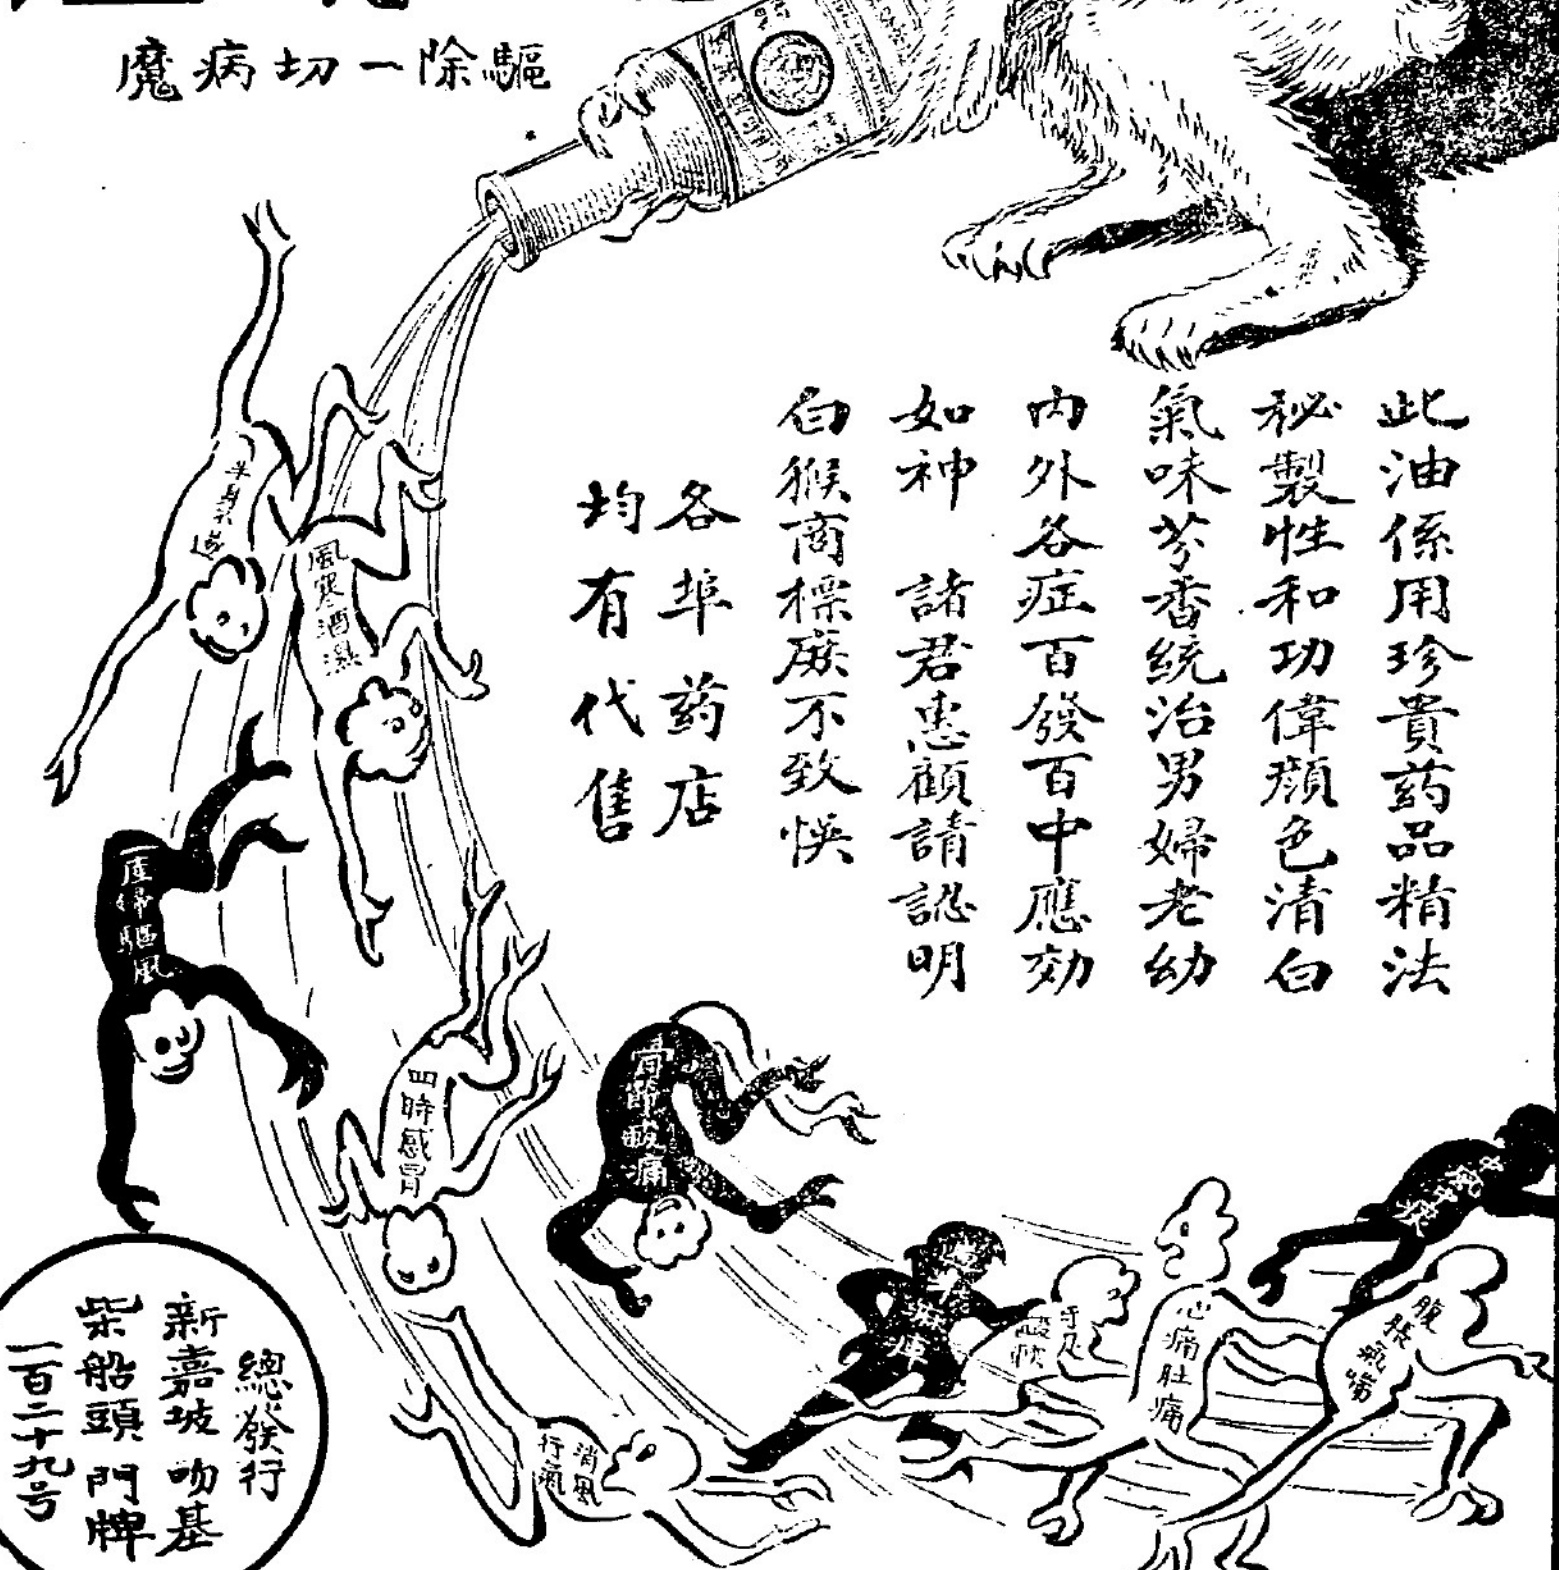 驅除一切病魔
此油係用珍貴葯品精法
秘製性和功偉顏色清白
氣味芬香統治男婦老幼
內外各症百發百中應効
如神 諸君惠顧請認明
白猴商標庶不致悞
各埠葯店
均有代售
風寒酒濕
產婦驅風
四時感冒
骨節酸痛
消風
行氣
心痛肚痛
總發行
新嘉坡吻基
柴船頭門牌
一百二十九号